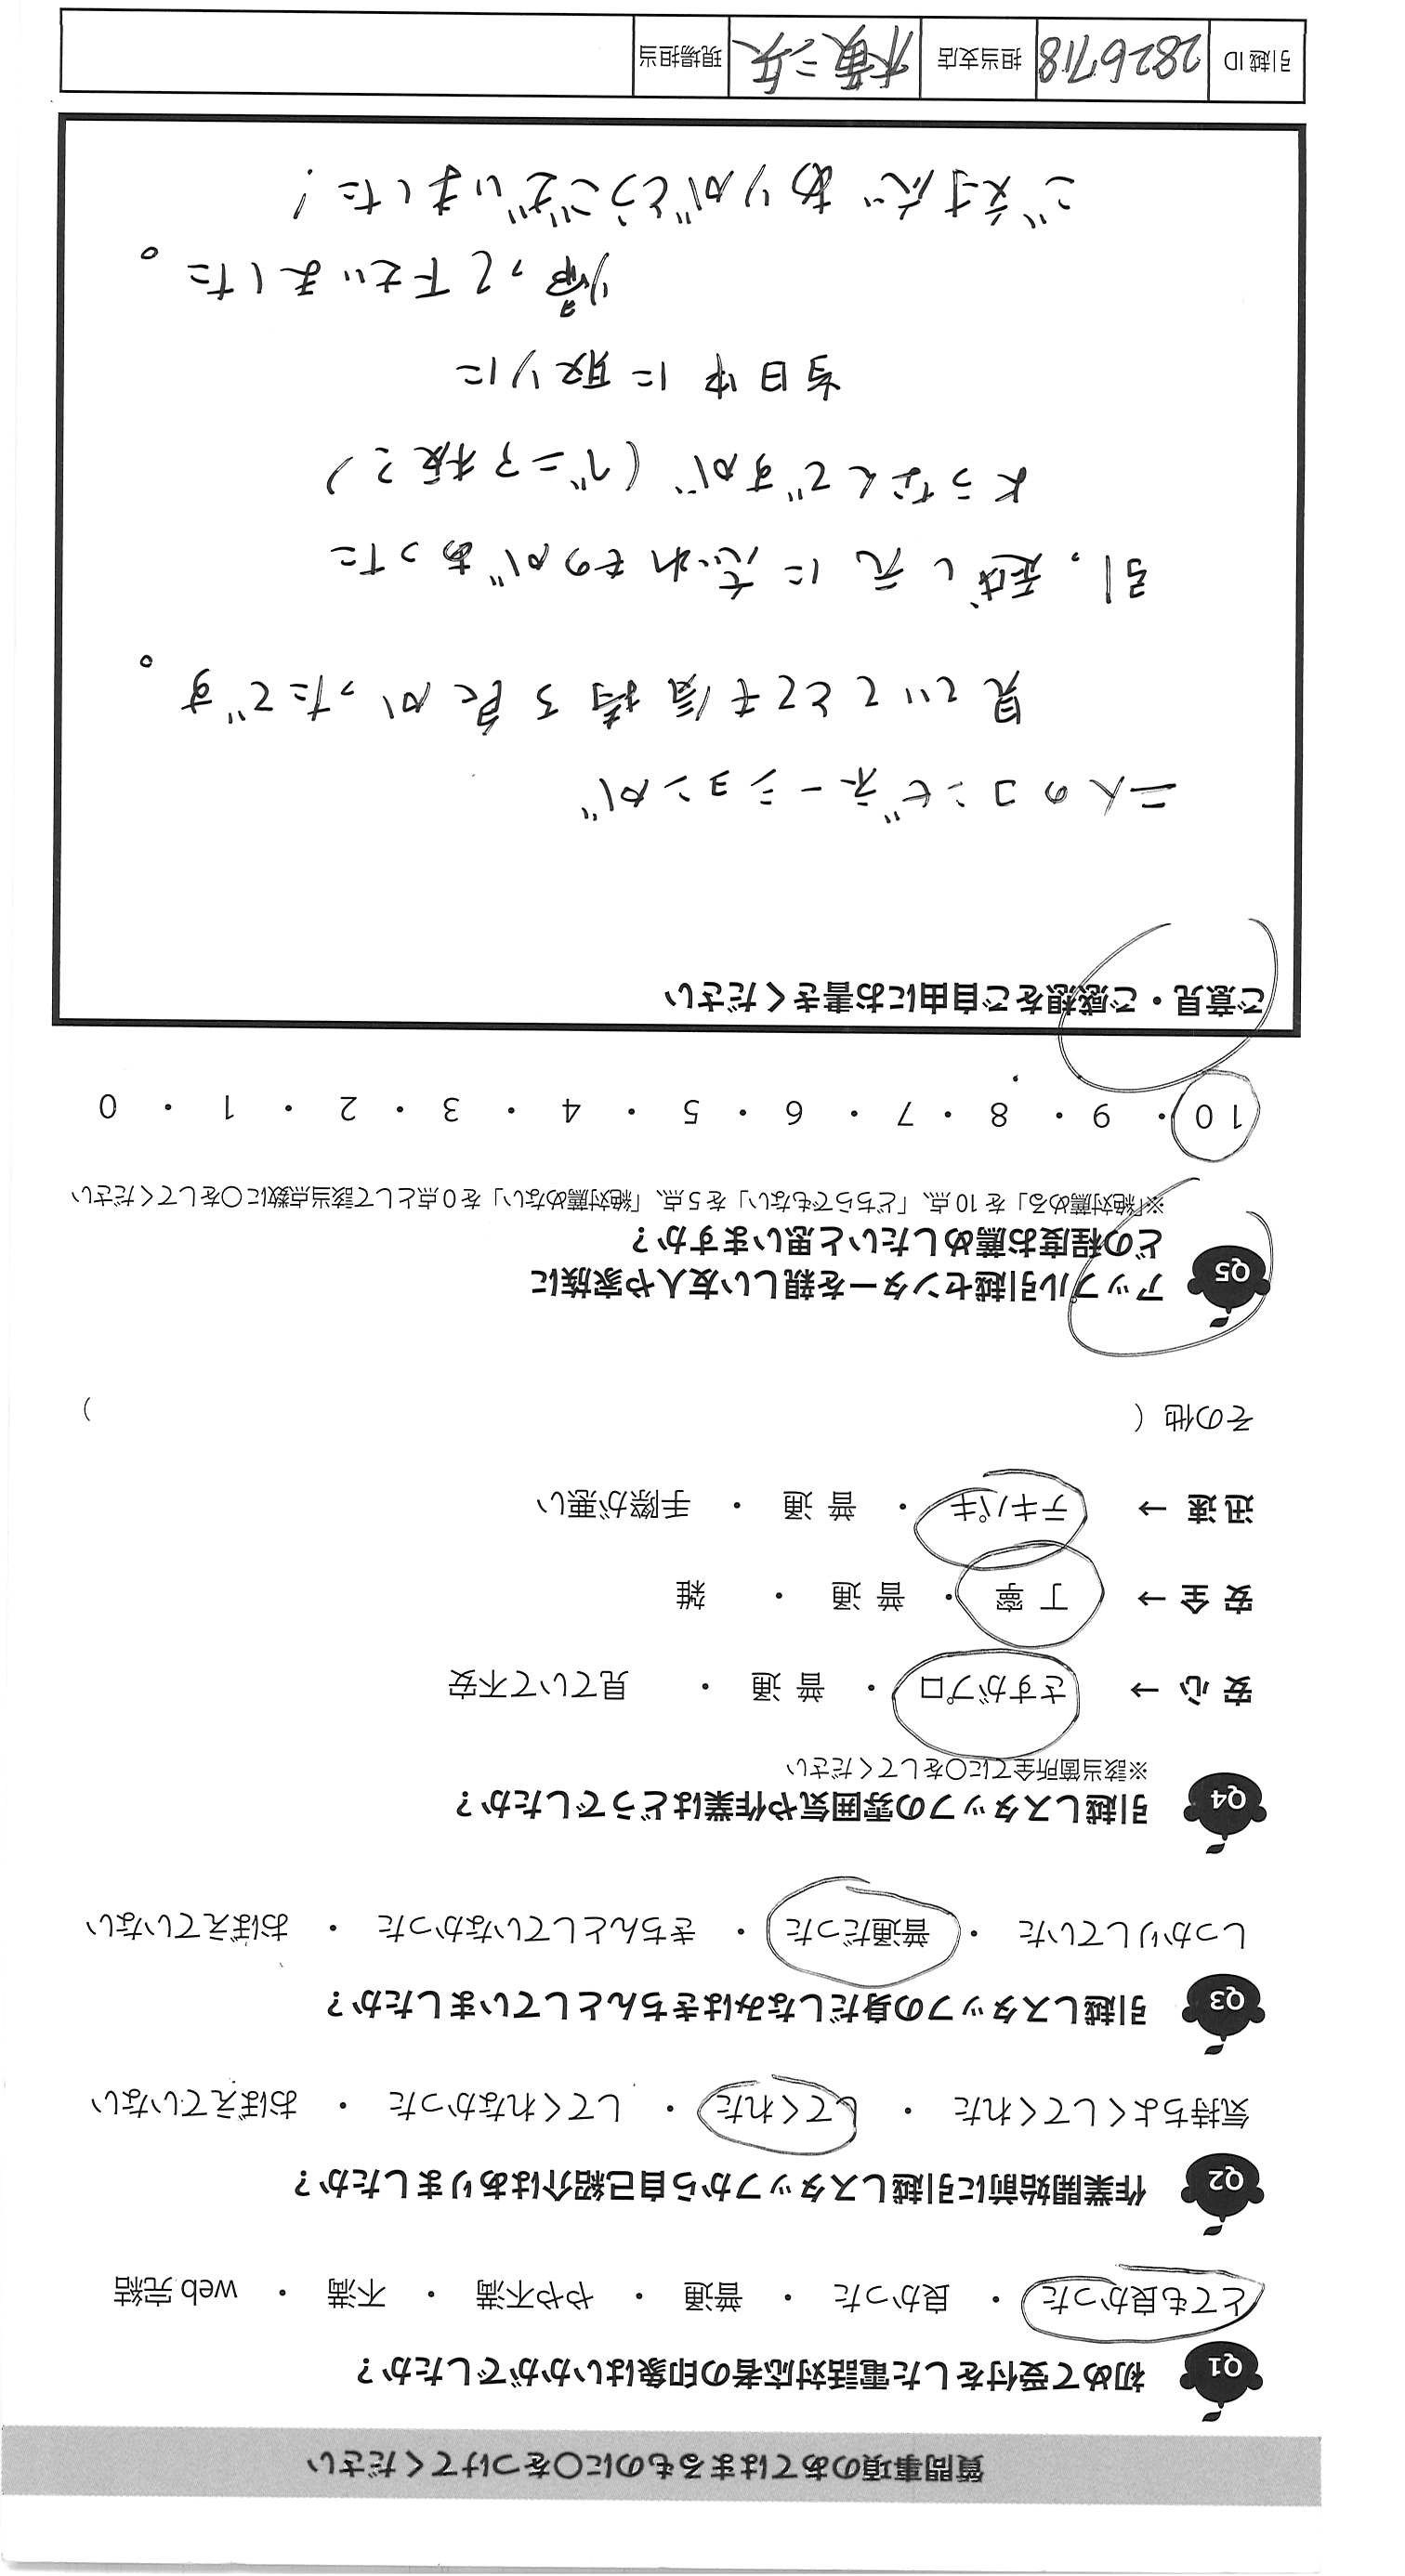 質問事項のあてはまるものに〇をつけてください
Q1 初めて受付をした電話対応者の印象はいかがでしたか?
とても良かった ・ 良かった ・ 普通 ・ やや不満 ・ 不満 ・ web 完結
Q2 作業開始前に引越しスタッフから自己紹介はありましたか?
気持ちよくしてくれた ・ してくれた ・ してくれなかった ・ おぼえていない
Q3 引越しスタッフの身だしなみはきちんとしていましたか?
しっかりしていた ・ 普通だった ・ きちんとしていなかった ・ おぼえていない
Q4 引越しスタッフの雰囲気や作業はどうでしたか?
※該当箇所全てに〇をしてください
安 心 → さすがプロ ・ 普 通 ・ 見ていて不安
安 全 → 丁 寧 ・ 普 通 ・ 雑
迅 速 → テキパキ ・ 普 通 ・ 手際が悪い
その他 ( )
Q5 アップル引越センターを親しい友人や家族に
どの程度お薦めしたいと思いますか?
※「絶対薦める」を 10 点、「どちらでもない」を 5 点、「絶対薦めない」を 0 点として該当点数に〇をしてください
10 ・ 9 ・ 8 ・ 7 ・ 6 ・ 5 ・ 4 ・ 3 ・ 2 ・ 1 ・ 0
ご意見・ご感想をご自由にお書きください
二人のコンビネーションが
見ていてとても気持ち良かったです。
引っ越し元に忘れものがあった
ようなんですが(ベニア板?)
当日中に取りに
帰って下さいました。
ご対応ありがとうございました!
引越 ID 2826718 担当支店 現場担当